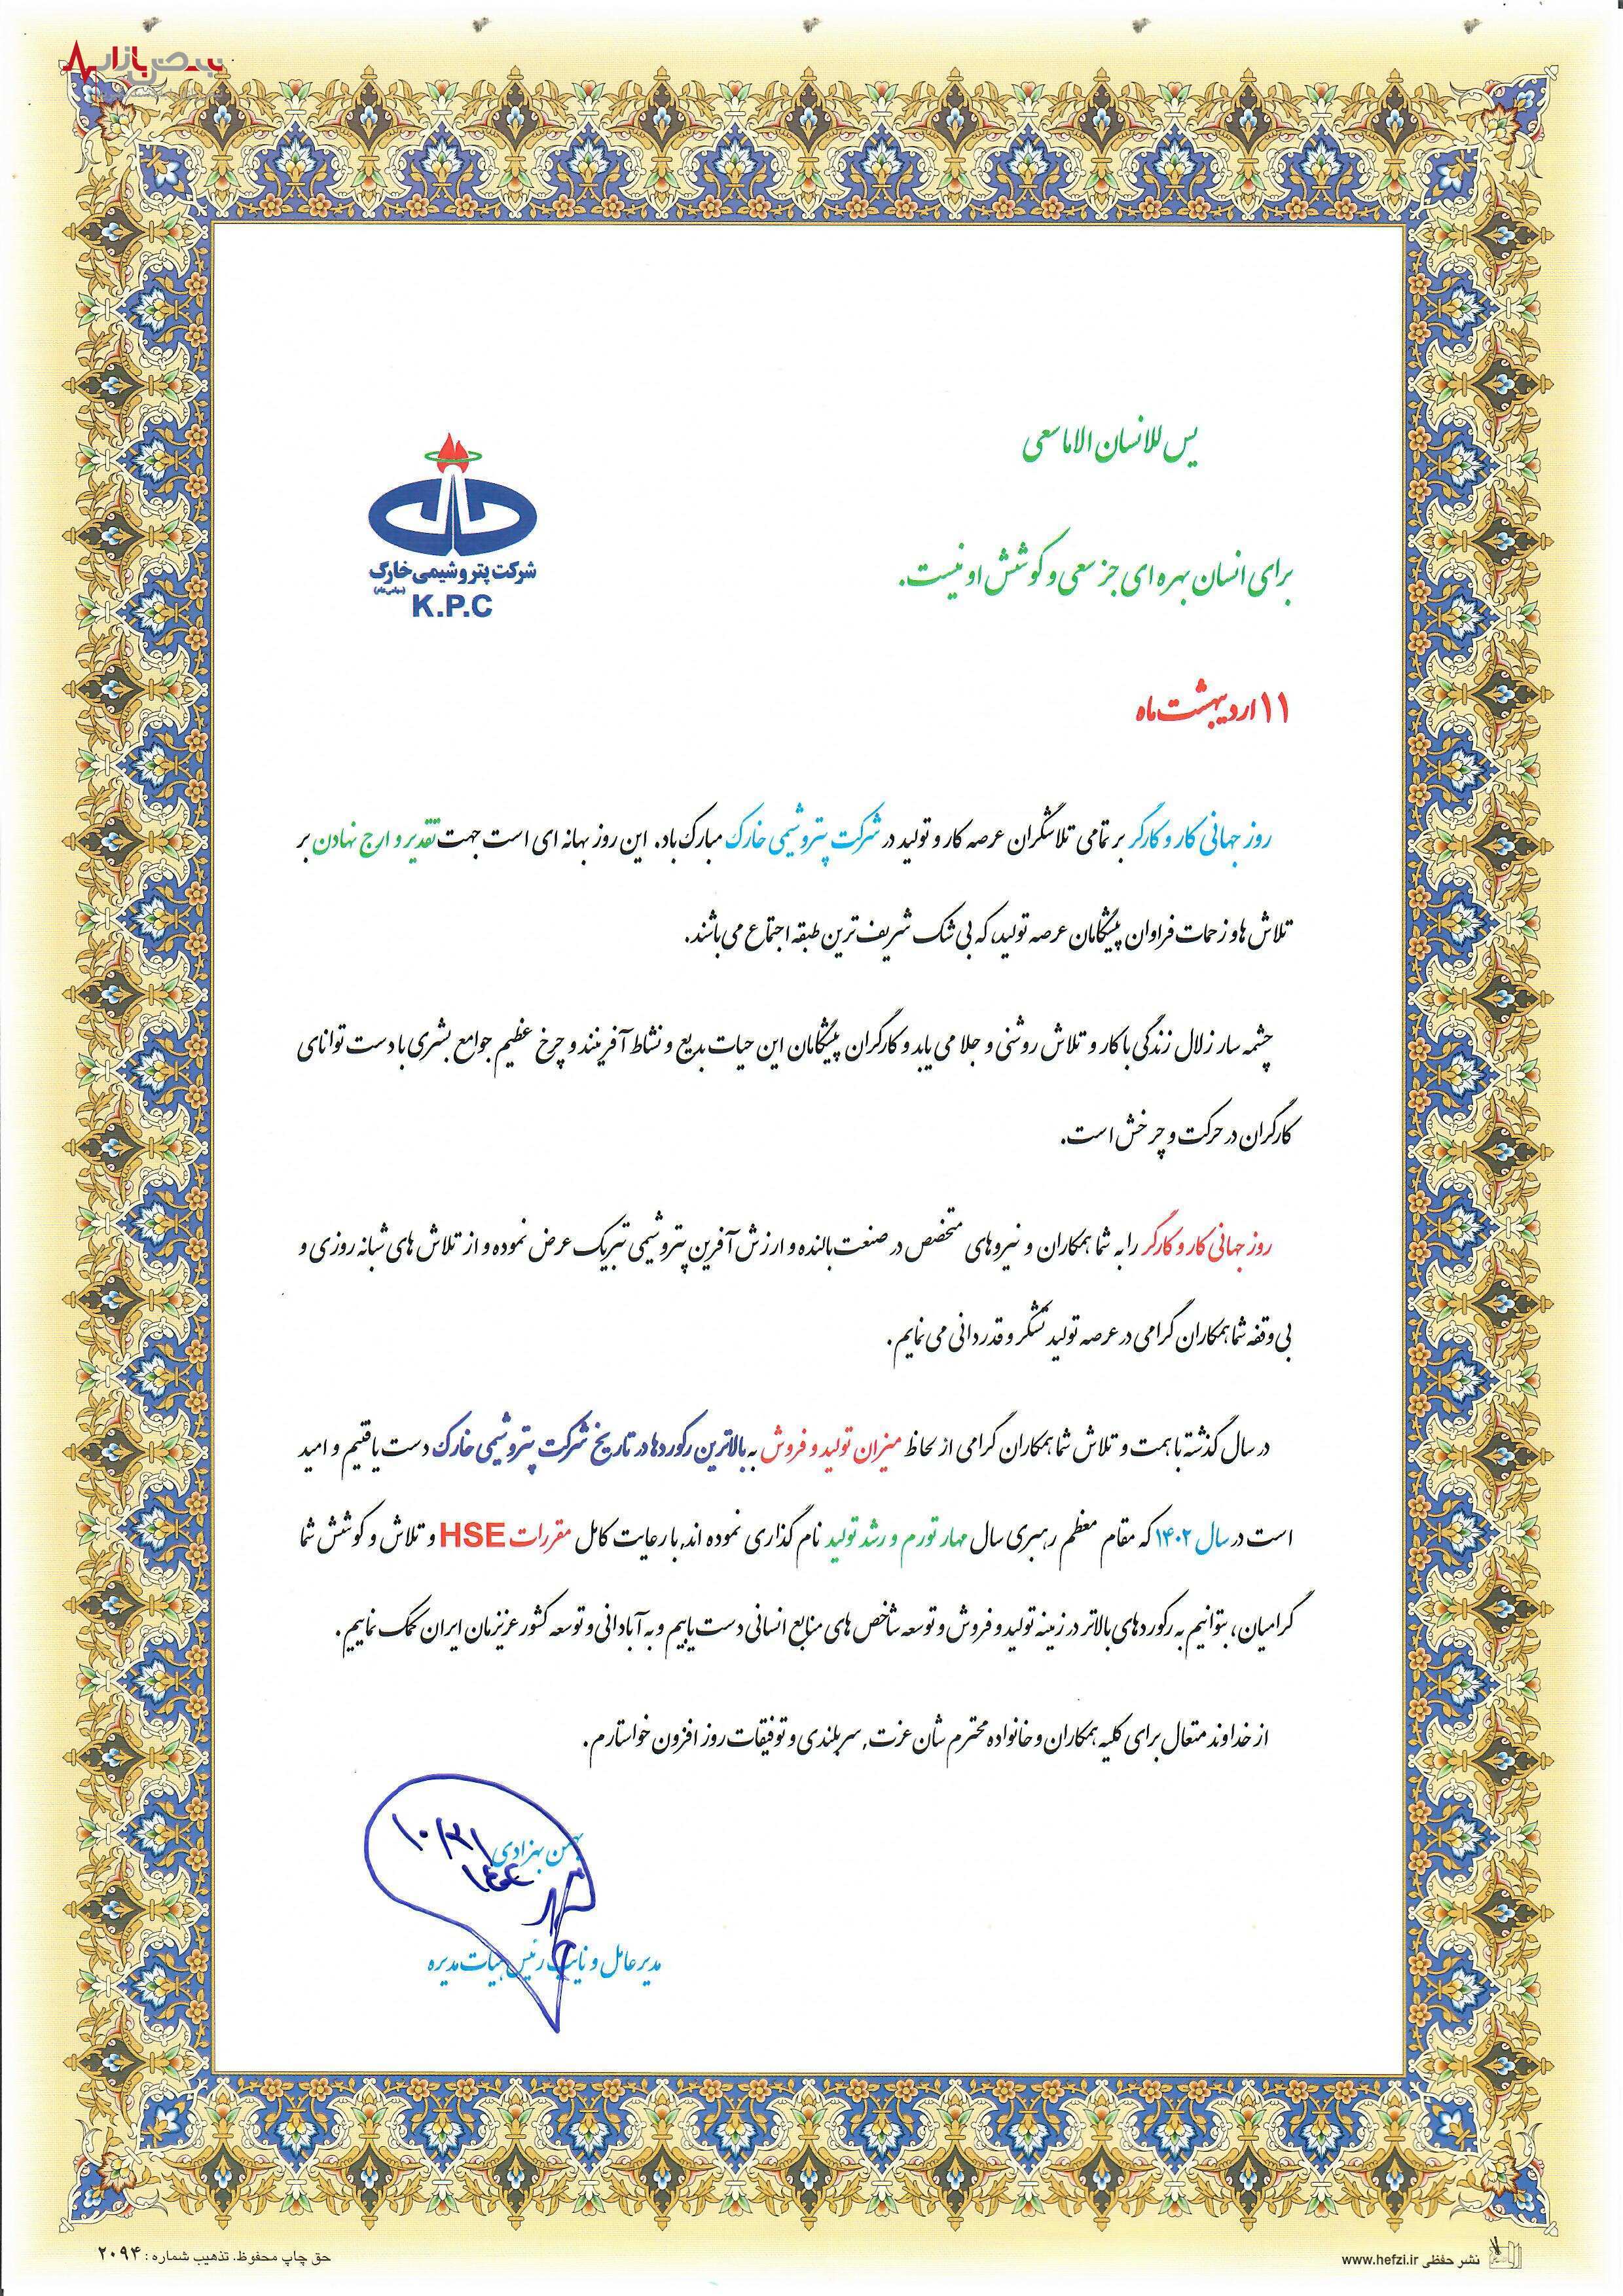 نبض بازار
یس للانسان الا ما سعی
برای انسان بهره ای جز سعی و کوشش او نیست.
شرکت پتروشیمی خارگ
(سهامی عام)
K.P.C
۱۱ اردیبهشت ماه
روز جهانی کار و کارگر بر تمامی تلاشگران عرصه کار و تولید در شرکت پتروشیمی خارک مبارک باد. این روز بهانه ای است جهت تقدیر و ارج نهادن بر
تلاش ها و زحمات فراوان پیشگامان عرصه تولید، که بی شک شریف ترین طبقه اجتماع می باشند.
چشمه سار زلال زندگی با کار و تلاش روشنی و جلا می یابد و کارگران پیشگامان این حیات بدیع و نشاط آفرینند و چرخ عظیم جوامع بشری با دست توانای
کارگران در حرکت و چرخش است.
روز جهانی کار و کارگر را به شما همکاران و نیروهای متخصص در صنعت بالنده و ارزش آفرین پتروشیمی تبریک عرض نموده و از تلاش های شبانه روزی و
بی وقفه شما همکاران گرامی در عرصه تولید تشکر و قدردانی می نمایم.
در سال گذشته با همت و تلاش شما همکاران گرامی از لحاظ میزان تولید و فروش به بالاترین رکوردها در تاریخ شرکت پتروشیمی خارک دست یافتیم و امید
است در سال ۱۴۰۲ که مقام معظم رهبری سال مهار تورم و رشد تولید نام گذاری نموده اند، با رعایت کامل مقررات HSE و تلاش و کوشش شما
گرامیان، بتوانیم به رکوردهای بالاتر در زمینه تولید و فروش و توسعه شاخص های منابع انسانی دست یابیم و به آبادانی و توسعه کشور عزیزمان ایران کمک نماییم.
از خداوند متعال برای کلیه همکاران و خانواده محترم شان عزت، سربلندی و توفیقات روز افزون خواستارم.
بهمن بهزادی
مدیر عامل و نایب رئیس هیات مدیره
نشر حفظی www.hefzi.ir
حق چاپ محفوظ. تذهیب شماره: ۲۰۹۴